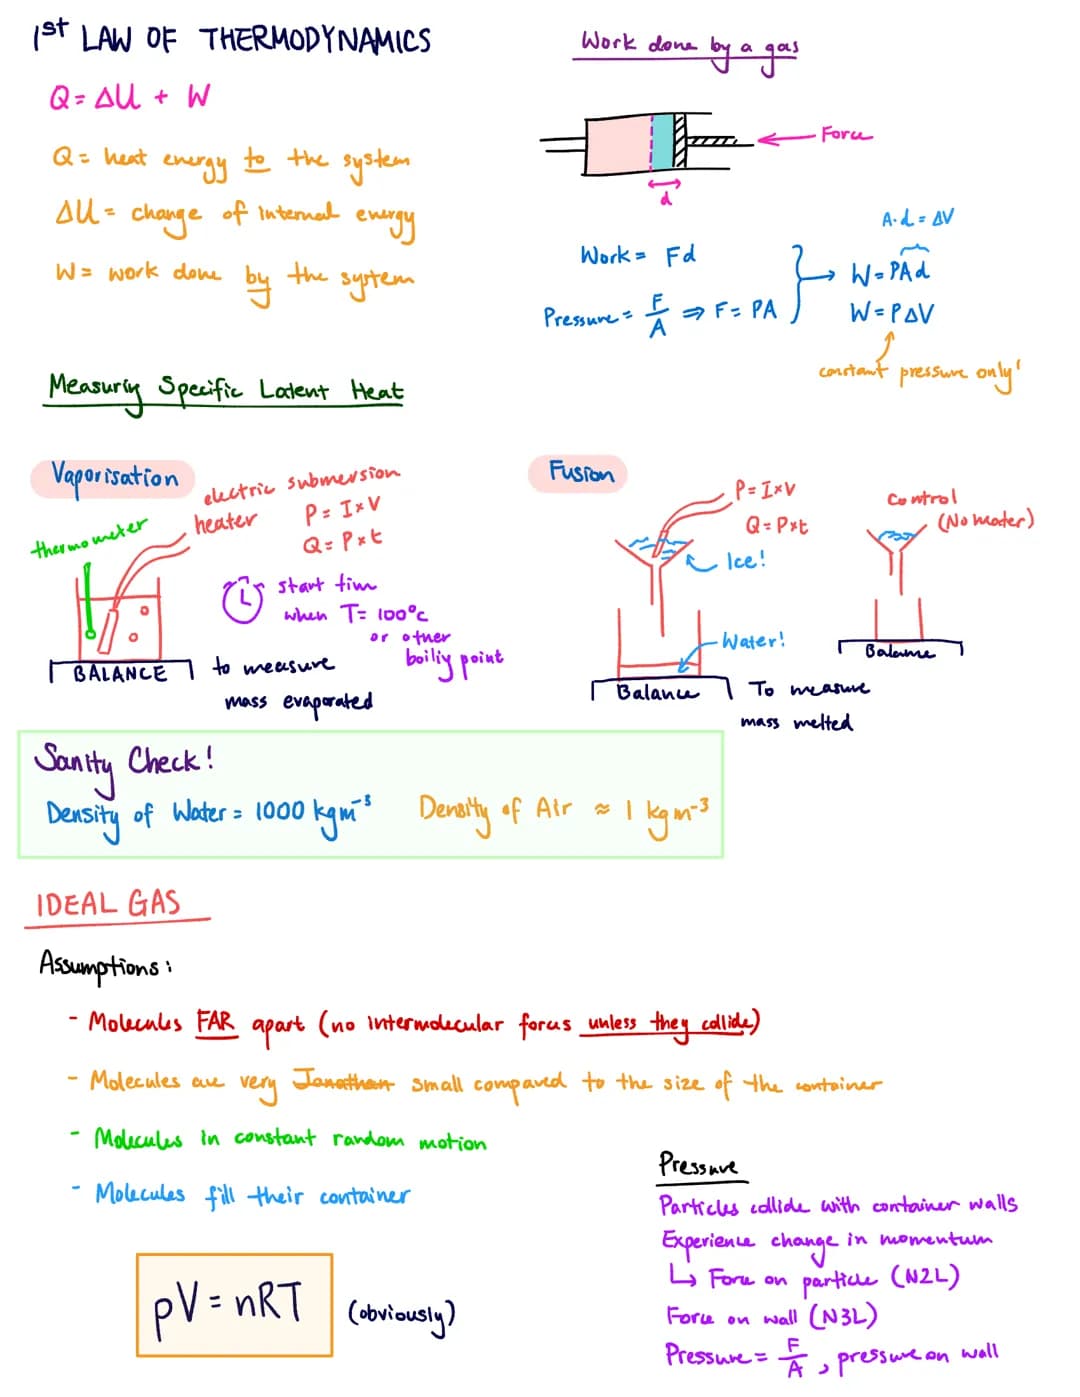 1st LAW OF THERMODYNAMICS
Q = ΔU + W
Q = heat energy to the system
ΔU = change of internal energy
W = work done by the system
Work done by a gas
Force
d
A·d = ΔV
Work = Fd
Pressure = F/A ⇒ F = PA
W = PAd
W = PΔV
constant pressure only!
Measuring Specific Latent Heat
Vaporisation
thermometer
electric submersion
heater
P = I×V
Q = P×t
start tim
when T = 100°c
or other
boiliy point
BALANCE
to measure
mass evaporated
Fusion
P = I×V
Q = P×t
Ice!
Water!
Balance
To measure
mass melted
Control
(No heater)
Balance
Sanity Check!
Density of Water = 1000 kgm⁻³
Density of Air ≈ 1 kgm⁻³
IDEAL GAS
Assumptions:
- Molecules FAR apart (no intermolecular forces unless they collide)
- Molecules are very Jonathan small compared to the size of the container
- Molecules in constant random motion
- Molecules fill their container
pV = nRT
(obviously)
Pressure
Particles collide with container walls
Experience change in momentum
↳ Force on particle (N2L)
Force on wall (N3L)
Pressure = F/A, pressure on wall